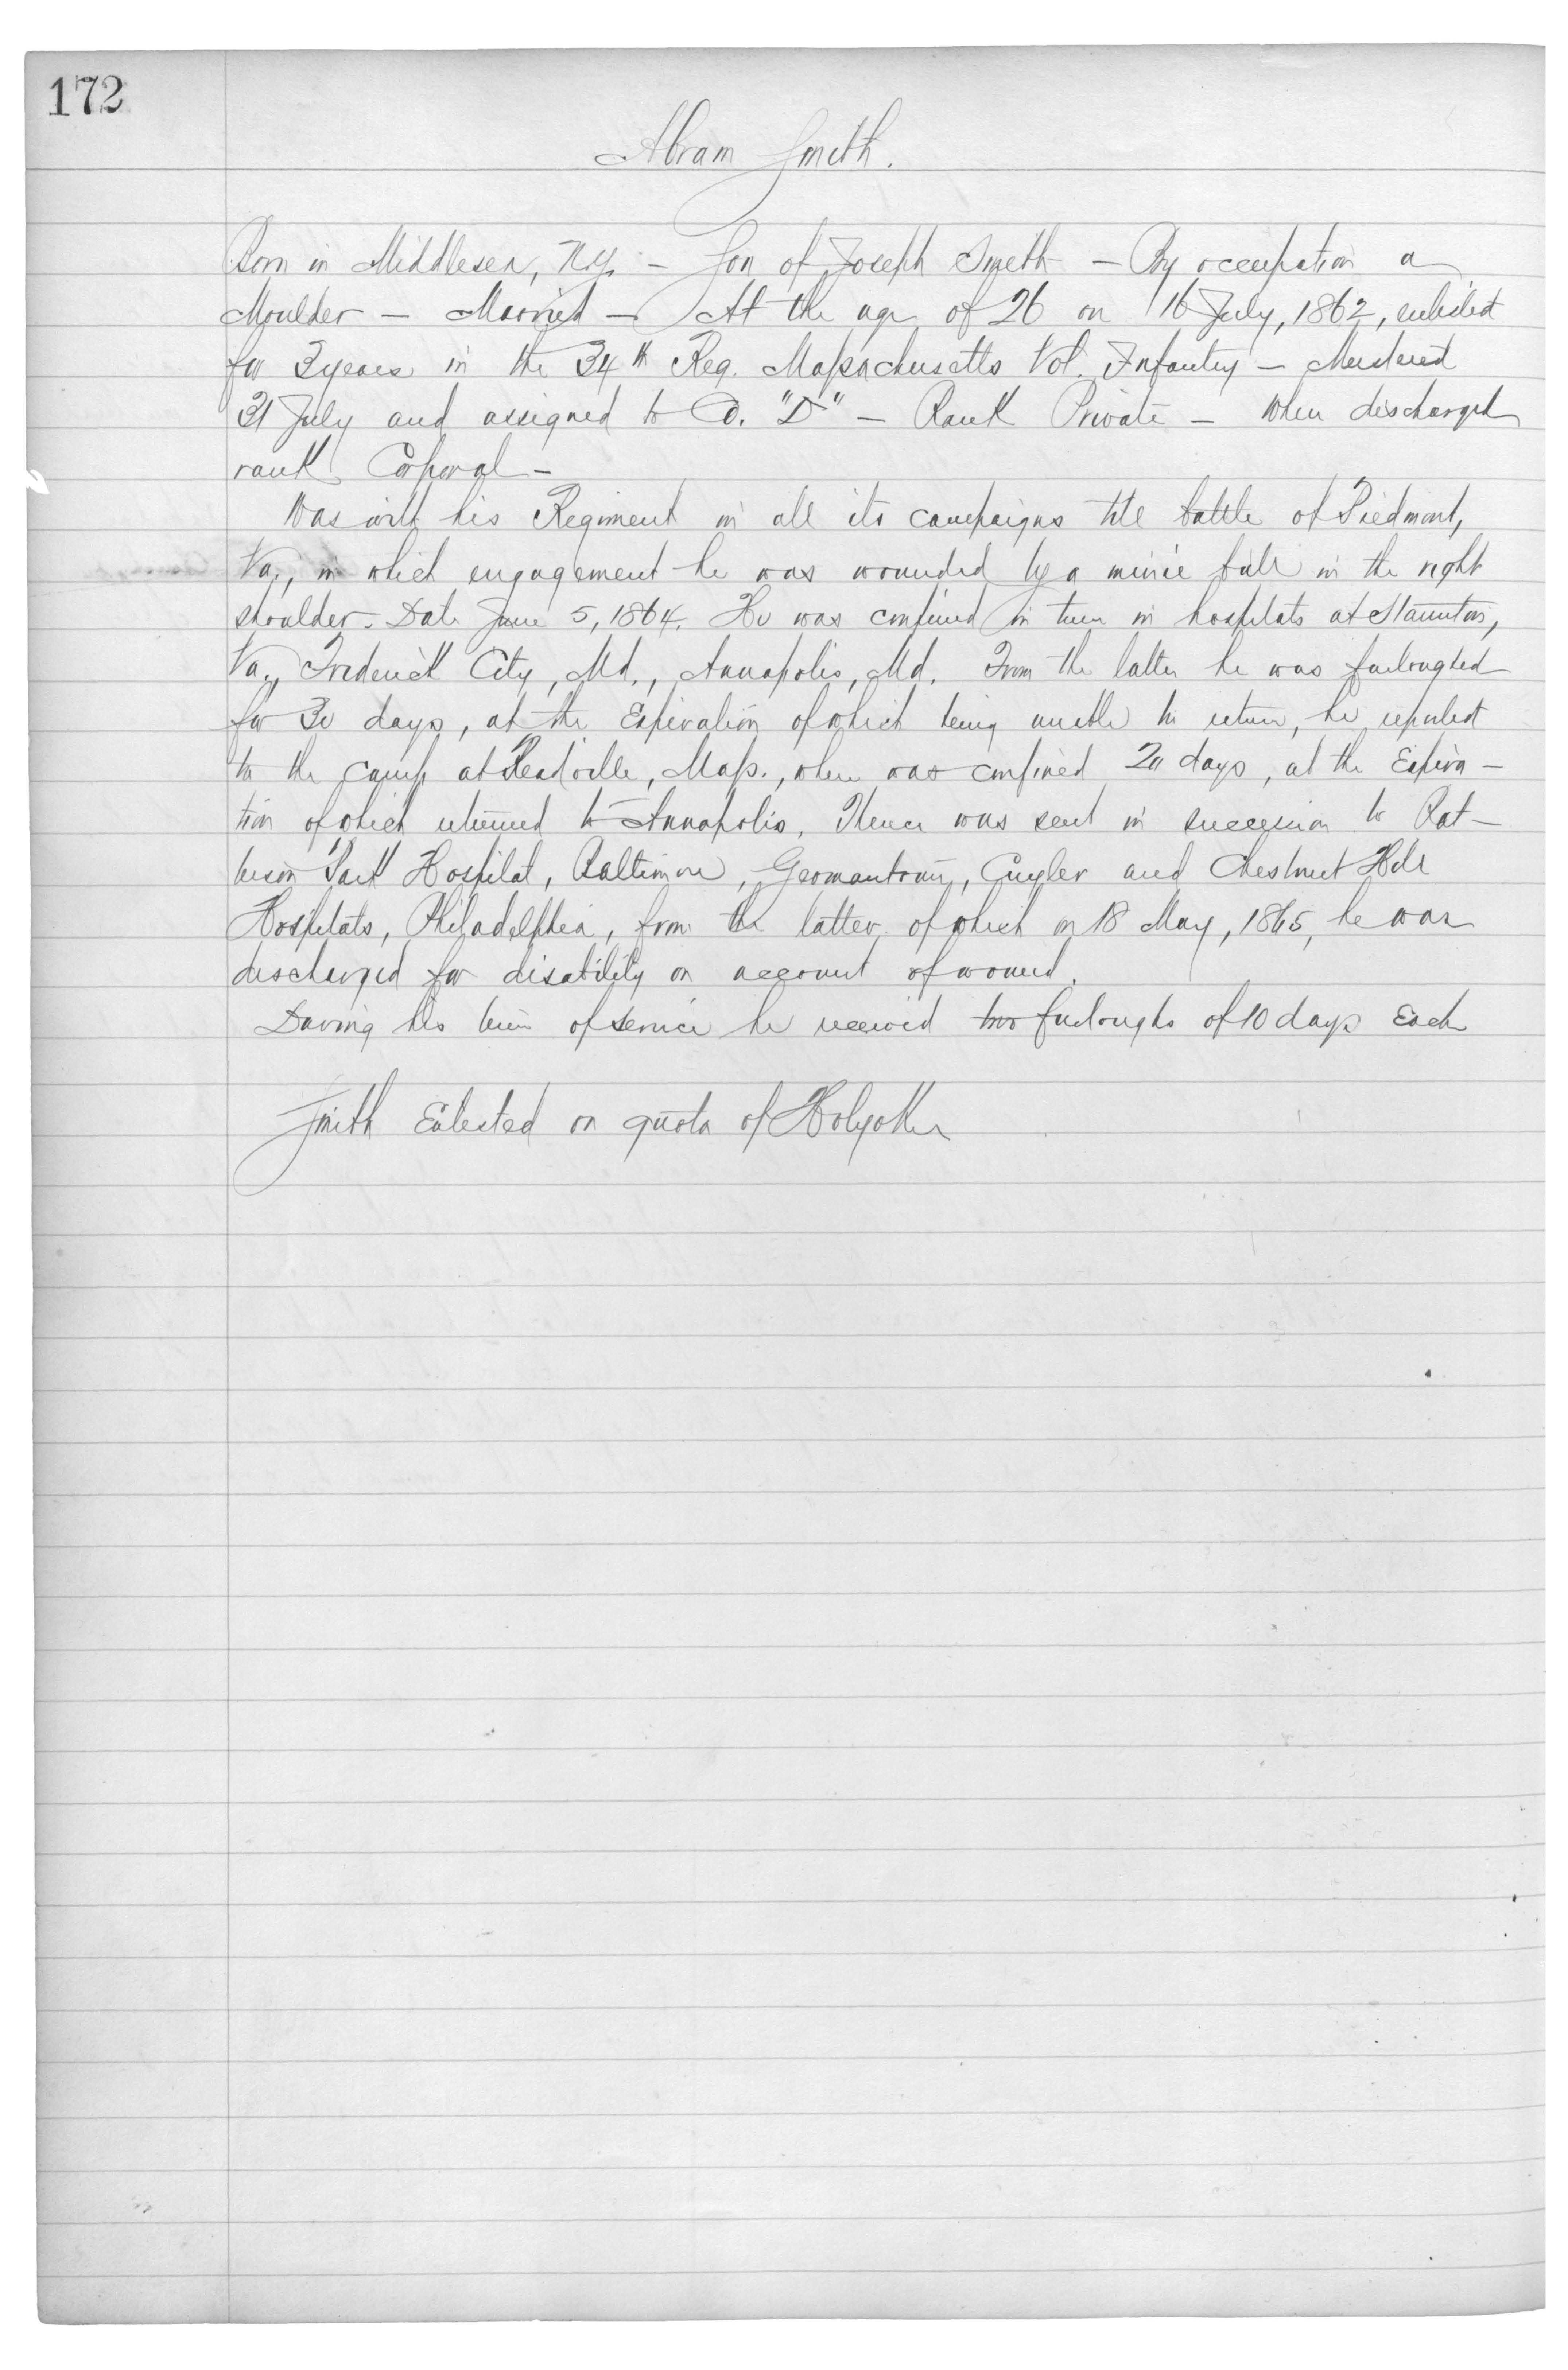 172
Abram Smith.
Born in Middlesex, N.Y. — Son of Joseph Smith — By occupation a
Moulder — Married — At the age of 26 on 16 July, 1862, enlisted
for 3 years in the 34th Reg. Massachusetts Vol. Infantry — Mustered
31 July and assigned to Co. "D" — Rank Private — When discharged
rank Corporal —
Was with his Regiment in all its campaigns till battle of Piedmont,
Va., in which engagement he was wounded by a minie ball in the right
shoulder. Date June 5, 1864. He was confined in turn in hospitals at Staunton,
Va., Frederick City, Md., Annapolis, Md. From the latter he was furloughed
for 30 days, at the Expiration of which being unable to return, he reported
to the camp at Readville, Mass., where was confined 20 days, at the Expira-
tion of which returned to Annapolis. Thence was sent in succession to Pat-
terson Park Hospital, Baltimore, Germantown, Cuyler and Chestnut Hill
Hospitals, Philadelphia, from the latter of which on 18 May, 1865, he was
discharged for disability on account of wound.
During his term of service he received two furloughs of 10 days Each
Smith Enlisted on quota of Holyoke